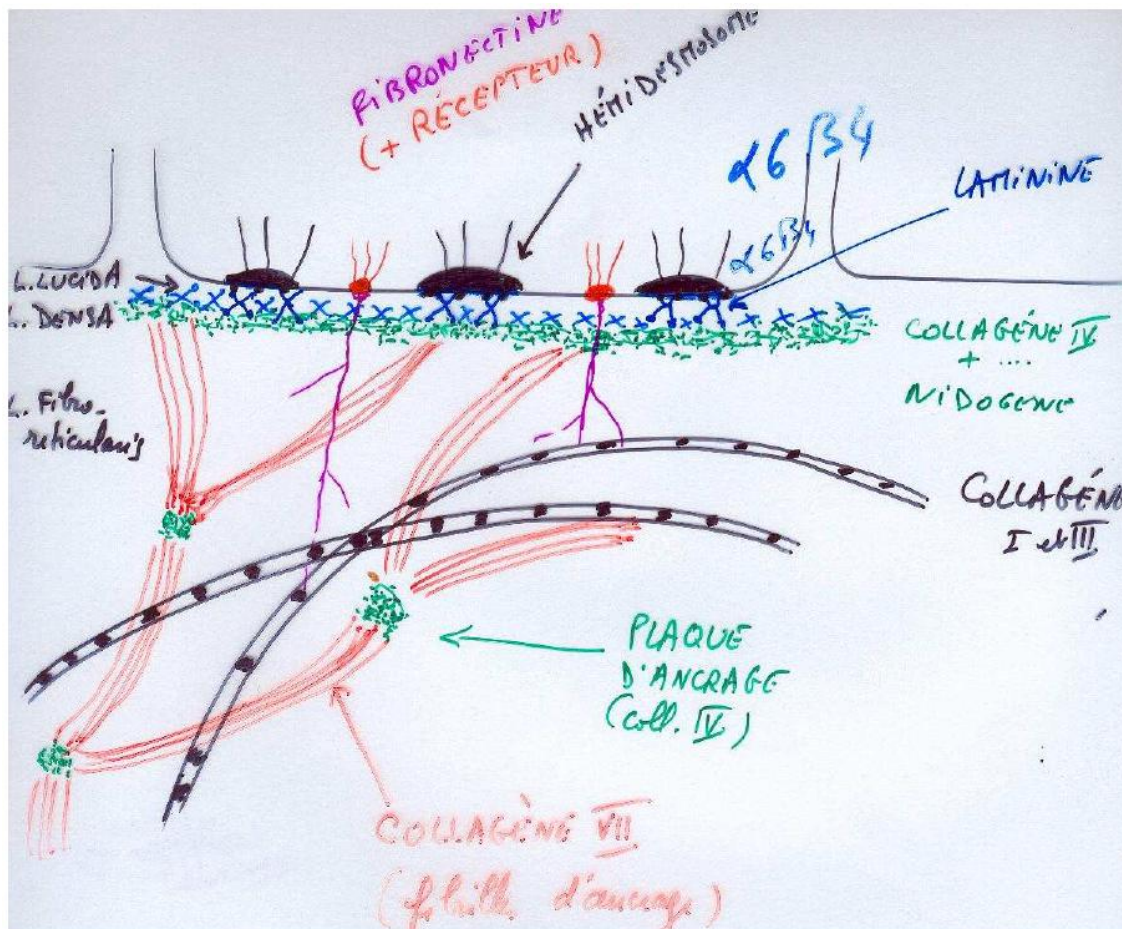 FIBRONECTINE
(+ RÉCEPTEUR)
HÉMIDESMOSOME
α6β4
LAMININE
α6β4
L. LUCIDA
L. DENSA
L. Fibro-
reticularis
COLLAGÉNE IV
+ ....
NIDOGENE
COLLAGÉNE
I et III
PLAQUE
D'ANCRAGE
(coll. IV)
COLLAGÈNE VII
(fibrille d'ancrage)